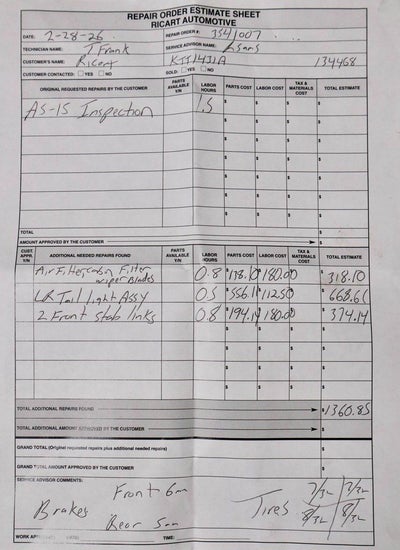 REPAIR ORDER ESTIMATE SHEET
RICART AUTOMOTIVE
DATE: 2-28-26 REPAIR ORDER #: 3541007
TECHNICIAN NAME: T. Frank SERVICE ADVISOR NAME:
CUSTOMER'S NAME: Ricart KTJ1431A 134468
CUSTOMER CONTACTED: YES NO SOLD: YES NO
ORIGINAL REQUESTED REPAIRS BY THE CUSTOMER PARTS AVAILABLE Y/N LABOR HOURS PARTS COST LABOR COST TAX & MATERIALS COST TOTAL ESTIMATE
AS-IS Inspection 1.5 $ $ $ $
$ $ $ $
$ $ $ $
$ $ $ $
$ $ $ $
$ $ $ $
TOTAL
AMOUNT APPROVED BY THE CUSTOMER $
CUST. APPR. Y/N ADDITIONAL NEEDED REPAIRS FOUND PARTS AVAILABLE Y/N LABOR HOURS PARTS COST LABOR COST TAX & MATERIALS COST TOTAL ESTIMATE
Air Filter cabin Filter wiper blades 0.8 $138.10 $180.00 $ 318.10
LR Tail light Assy 0.5 $556.11 $112.50 $ 668.61
2 Front Stab links 0.8 $194.14 $180.00 $ 374.14
$ $ $ $
$ $ $ $
$ $ $ $
TOTAL ADDITIONAL REPAIRS FOUND $1360.85
TOTAL ADDITIONAL AMOUNT APPROVED BY THE CUSTOMER $
GRAND TOTAL (Original requested repairs plus additional needed repairs) $
GRAND TOTAL AMOUNT APPROVED BY THE CUSTOMER $
SERVICE ADVISOR COMMENTS:
Front 6m 7/32 7/32
Brakes Tires
Rear 5mm 8/32 8/32
WORK TIME: